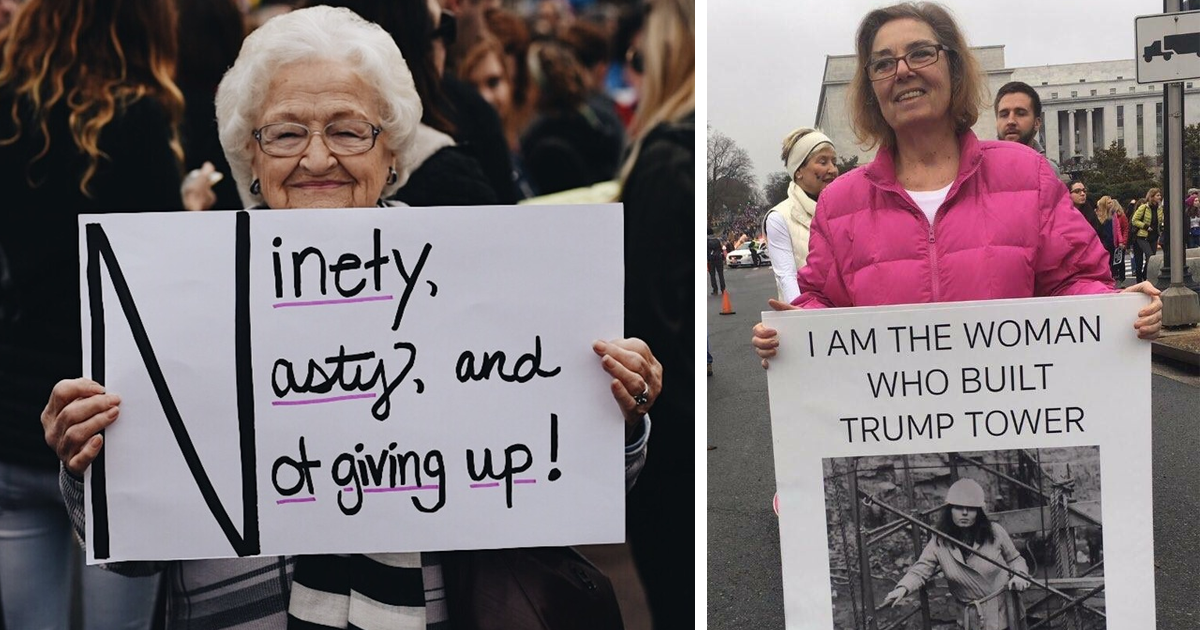 Ninety,
Nasty, and
Not giving up!
I AM THE WOMAN
WHO BUILT
TRUMP TOWER